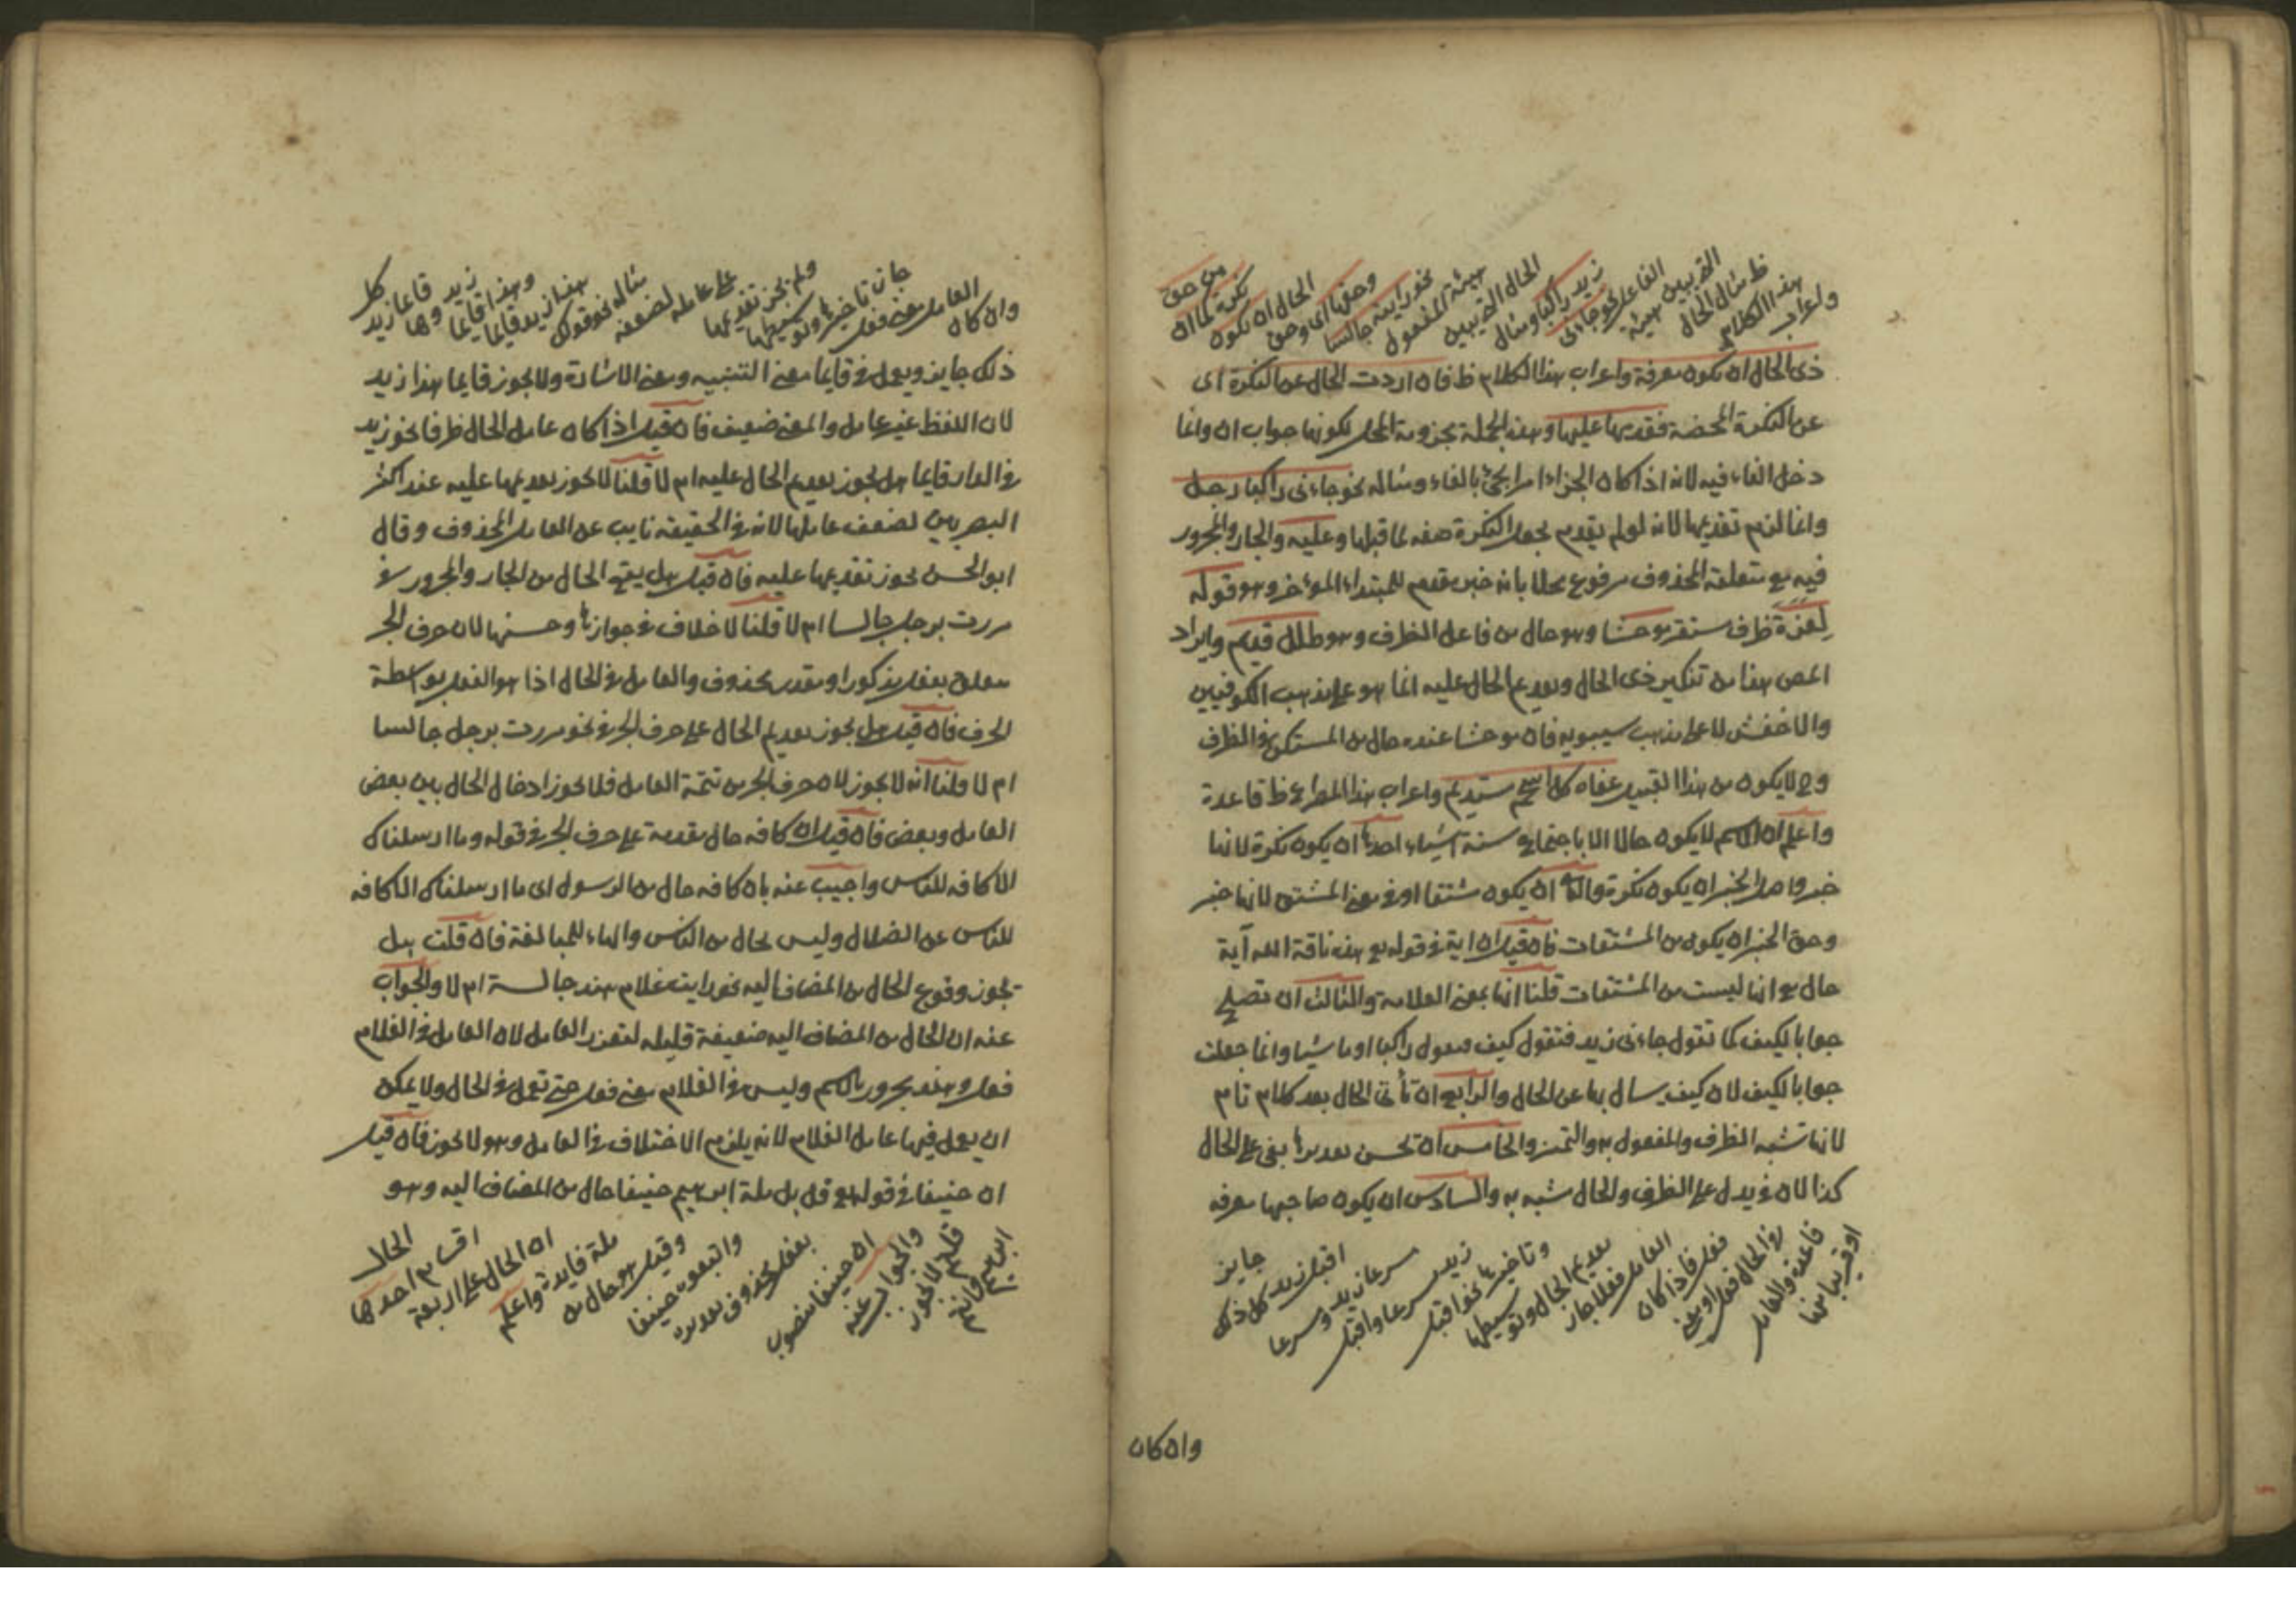 واعراب
هذا الكلام
ظ مثال الحال
التي يبين هيئة
الفاعل نحو جاءنى
زيد راكبا ومثال
الحال التي يبين
هيئة المفعول
نحو رايته جالسا
وحقها اى وحق
الحال ان يكون
نكرة كما ان
من حق
ذى الحال ان يكون معرفة واعراب هذا الكلام ظ فان اردت الحال عن النكرة اى
عن النكرة المحضة فقدمها عليها وهذه الجملة مجزومة المحل لكونها جواب ان وانما
دخل الفاء فيه لانه اذا كان الجزاء امرا يجئ بالفاء ومثاله نحو جاءنى راكبا رجل
وانما لزم تقديمها لانه لو لم يقدم يجعل النكرة صفه لما قبلها وعليه والجار والمجرور
فيه مع متعلقه المحذوف مرفوع محلا بانه خبر مقدم للمبتداء المؤخر وهو قوله
لعزة ظرف مستقر موحشا وهو حال من فاعل الظرف وهو طلل قديم وايراد
المص هذا من تنكير ذى الحال وتقديم الحال عليه انما هو على مذهب الكوفيين
والاخفش لا على مذهب سيبويه فان موحشا عنده حال من المستكن فى الظرف
وح لا يكون من هذا القبيل عفاه كل اسحم مستديم واعراب هذا المصراع ظ قاعدة
واعلم ان الاسم لا يكون حالا الا باجتماع ستة اشياء احدها ان يكون نكرة لانها
خبر واصل الخبر ان يكون نكرة والثانى ان يكون مشتقا او فى معنى المشتق لانها خبر
وحق الخبر ان يكون من المشتقات فان قيل ان اية فى قوله تع هذه ناقة الله آية
حال مع انها ليست من المشتقات قلنا انها بمعنى العلامة والثالث ان تصلح
جوابا لكيف كما تقول جاءنى زيد فتقول كيف فتقول راكبا او ماشيا وانما جعلت
جوابا لكيف لان كيف يسال بها عن الحال والرابع ان تأتى الحال بعد كلام تام
لانها تشبه الظرف والمفعول به والتميز والخامس ان تحسن تقديرها بفى على الحال
كذا لان فى يدل على الظرف والحال شبه به والسادس ان يكون صاحبها معرفه
او قريبا منها
قاعدة والعامل
فى الحال فعل او معنى
فعل فاذا كان
العامل فعلا جاز
تقديم الحال وتوسيطها
وتاخيرها نحو اقبل
زيد مسرعا واقبل
مسرعا زيد ومسرعا
اقبل زيد كل ذلك
جايز
وان كان
وان كان
العامل معنى فعل
جاز تاخيرها وتوسيطها
ولم يجز تقديمها
على عامله لضعفه
مثاله نحو قولك
هذا زيد قايما
وهذا قايما
زيد وها
قايما زيد
كل
ذلك جايز ويعمل فى قايما معنى التنبيه ومعنى الاشارة ولا يجوز قايما هذا زيد
لان اللفظ غير عامل والمعنى ضعيف فان قيل اذا كان عامل الحال ظرفا نحو زيد
فى الدار قايما هل يجوز تقديم الحال عليه ام لا قلنا لا يجوز تقديمها عليه عند اكثر
البصريين لضعف عاملها لانه فى الحقيقه نايب عن العامل المحذوف وقال
ابو الحسن يجوز تقديمها عليه فان قيل هل يقع الحال من الجار والمجرور فى
مررت برجل جالسا ام لا قلنا لا خلاف فى جوازها وحسنها لان حرف الجر
متعلق بفعل مذكور او مقدر محذوف والعامل فى الحال اذا هو الفعل بواسطة
الحرف فان قيل هل يجوز تقديم الحال على حرف الجر فى نحو مررت برجل جالسا
ام لا قلنا انه لا يجوز لان حرف الجر من تتمة العامل فلا يجوز ادخال الحال بين بعض
العامل وبعض فان قيل ان كافه حال مقدمة على حرف الجر فى قوله وما ارسلناك
الا كافه للناس واجيب عنه بان كافه حال من الرسول اى ما ارسلناك الا كافه
للناس عن الضلال وليس بحال من الناس والهاء للمبالغة فان قلت هل
يجوز وقوع الحال من المضاف اليه نحو رايت غلام هند جالسة ام لا والجواب
عنه ان الحال من المضاف اليه ضعيفة قليله لتعذر العامل لان العامل فى الغلام
فعل وهند مجرور بالاسم وليس فى الغلام معنى فعل حتى تعمل فى الحال ولا يمكن
ان يعمل فيها عامل الغلام لانه يلزم الاختلاف فى العامل وهو لا يجوز فان قيل
ان حنيفا فى قوله تع قل بل ملة ابرهيم حنيفا حال من المضاف اليه وهو
ابرهيم وانتم
قلتم لا يجوز
والجواب عنه
ان حنيفا منصوب
بفعل محذوف تقديره
واتبعوا حنيفا
وقيل هو حال من
ملة فايدة واعلم
ان الحال على اربعة
اقسام احدها
الحال